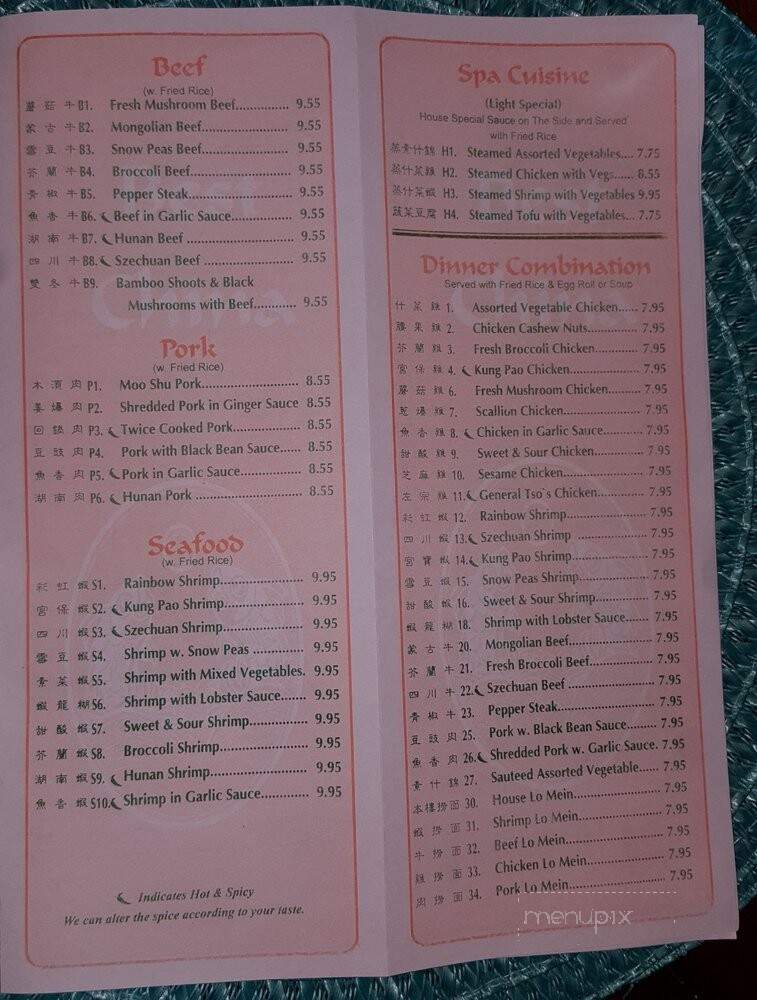 Beef
(w. Fried Rice)
蘑菇牛 B1. Fresh Mushroom Beef.............. 9.55
蒙古牛 B2. Mongolian Beef........................ 9.55
雪豆牛 B3. Snow Peas Beef........................ 9.55
芥蘭牛 B4. Broccoli Beef........................... 9.55
青椒牛 B5. Pepper Steak............................ 9.55
魚香牛 B6. Beef in Garlic Sauce................ 9.55
湖南牛 B7. Hunan Beef ............................ 9.55
四川牛 B8. Szechuan Beef ....................... 9.55
雙冬牛 B9. Bamboo Shoots & Black
Mushrooms with Beef............ 9.55
Pork
(w. Fried Rice)
木須肉 P1. Moo Shu Pork............................ 8.55
姜爆肉 P2. Shredded Pork in Ginger Sauce 8.55
回鍋肉 P3. Twice Cooked Pork................... 8.55
豆豉肉 P4. Pork with Black Bean Sauce...... 8.55
魚香肉 P5. Pork in Garlic Sauce................. 8.55
湖南肉 P6. Hunan Pork .............................. 8.55
Seafood
(w. Fried Rice)
彩虹蝦 S1. Rainbow Shrimp........................ 9.95
宮保蝦 S2. Kung Pao Shrimp....................... 9.95
四川蝦 S3. Szechuan Shrimp....................... 9.95
雪豆蝦 S4. Shrimp w. Snow Peas ............... 9.95
素菜蝦 S5. Shrimp with Mixed Vegetables. 9.95
蝦龍糊 S6. Shrimp with Lobster Sauce....... 9.95
甜酸蝦 S7. Sweet & Sour Shrimp................ 9.95
芥蘭蝦 S8. Broccoli Shrimp........................ 9.95
湖南蝦 S9. Hunan Shrimp........................... 9.95
魚香蝦 S10. Shrimp in Garlic Sauce............. 9.95
Indicates Hot & Spicy
We can alter the spice according to your taste.
Spa Cuisine
(Light Special)
House Special Sauce on The Side and Served
with Fried Rice
蒸素什錦 H1. Steamed Assorted Vegetables.... 7.75
蒸什菜雞 H2. Steamed Chicken with Vegs...... 8.55
蒸什菜蝦 H3. Steamed Shrimp with Vegetables 9.95
蔬菜豆腐 H4. Steamed Tofu with Vegetables... 7.75
Dinner Combination
Served with Fried Rice & Egg Roll or Soup
什菜雞 1. Assorted Vegetable Chicken...... 7.95
腰果雞 2. Chicken Cashew Nuts............... 7.95
芥蘭雞 3. Fresh Broccoli Chicken............. 7.95
宮保雞 4. Kung Pao Chicken.................... 7.95
蘑菇雞 6. Fresh Mushroom Chicken......... 7.95
蔥爆雞 7. Scallion Chicken....................... 7.95
魚香雞 8. Chicken in Garlic Sauce........... 7.95
甜酸雞 9. Sweet & Sour Chicken.............. 7.95
芝麻雞 10. Sesame Chicken........................ 7.95
左宗雞 11. General Tso's Chicken.............. 7.95
彩虹蝦 12. Rainbow Shrimp....................... 7.95
四川蝦 13. Szechuan Shrimp .................... 7.95
宮寶蝦 14. Kung Pao Shrimp...................... 7.95
雪豆蝦 15. Snow Peas Shrimp.................... 7.95
甜酸蝦 16. Sweet & Sour Shrimp............... 7.95
蝦龍糊 18. Shrimp with Lobster Sauce....... 7.95
蒙古牛 20. Mongolian Beef........................ 7.95
芥蘭牛 21. Fresh Broccoli Beef.................. 7.95
四川牛 22. Szechuan Beef ......................... 7.95
青椒牛 23. Pepper Steak............................ 7.95
豆豉肉 25. Pork w. Black Bean Sauce......... 7.95
魚香肉 26. Shredded Pork w. Garlic Sauce. 7.95
素什錦 27. Sauteed Assorted Vegetable...... 7.95
本樓撈面 30. House Lo Mein......................... 7.95
蝦撈面 31. Shrimp Lo Mein........................ 7.95
牛撈面 32. Beef Lo Mein............................ 7.95
雞撈面 33. Chicken Lo Mein....................... 7.95
肉撈面 34. Pork Lo Mein............................ 7.95
menupix